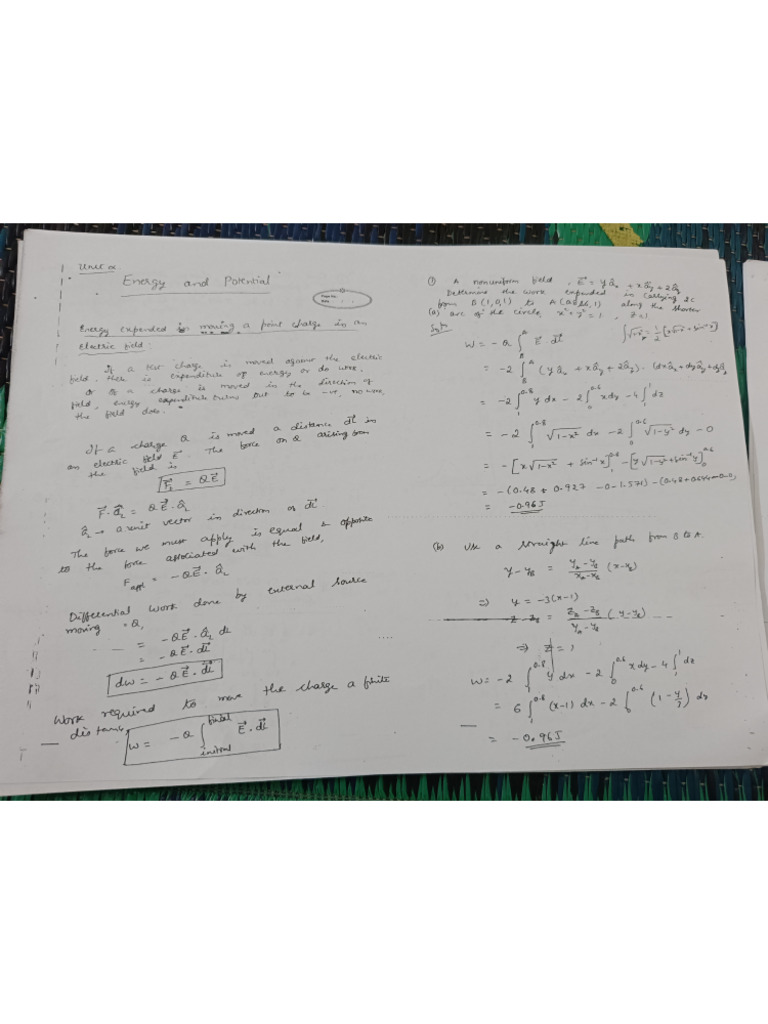 Unit
Energy and Potential
Page No.
Date
Energy expended in moving a point charge in an
electric field:
If a test charge is moved against the electric
field, there is expenditure of energy or do work.
or if a charge is moved in the direction of
field, energy expenditure turns out to be -ve, no work
the field does.
If a charge Q is moved a distance dL in
an electric field E. The force on Q arising from
the field is
F = QE
F · a_L = QE · a_L
a_L → a unit vector in direction of dL.
The force we must apply is equal & opposite
to the force associated with the field,
F_appl = -QE · a_L
Differential work done by external source
moving Q,
= -QE · a_L dL
= -QE · dL
dW = -QE · dL
Work required to move the charge a finite
distance
W = -Q ∫_initial^final E · dL
① A nonuniform field, E = y a_x + x a_y + 2 a_z
Determine the work expended in carrying 2C
from B(1,0,1) to A(0.8, 0.6, 1) along the shorter
(a) arc of the circle, x² + y² = 1, z = 1.
W = -Q ∫_B^A E · dL
= -2 ∫_B^A (y a_x + x a_y + 2 a_z) · (dx a_x + dy a_y + dz a_z)
= -2 ∫_1^0.8 y dx - 2 ∫_0^0.6 x dy - 4 ∫_1^1 dz
= -2 ∫_1^0.8 √(1-x²) dx - 2 ∫_0^0.6 √(1-y²) dy - 0
= -[x√(1-x²) + sin⁻¹x]_1^0.8 - [y√(1-y²) + sin⁻¹y]_0^0.6
= -(0.48 + 0.927 - 0 - 1.571) - (0.48 + 0.644 - 0 - 0)
= -0.96J
(b) Use a straight line path from B to A.
y - y_B = (y_A - y_B)/(x_A - x_B) (x - x_B)
⇒ y = -3(x-1)
z - z_B = (z_A - z_B)/(y_A - y_B) (y - y_B)
⇒ z = 1
W = -2 ∫_1^0.8 y dx - 2 ∫_0^0.6 x dy - 4 ∫_1^1 dz
= 6 ∫_1^0.8 (x-1) dx - 2 ∫_0^0.6 (1 - y/3) dy
= -0.96J